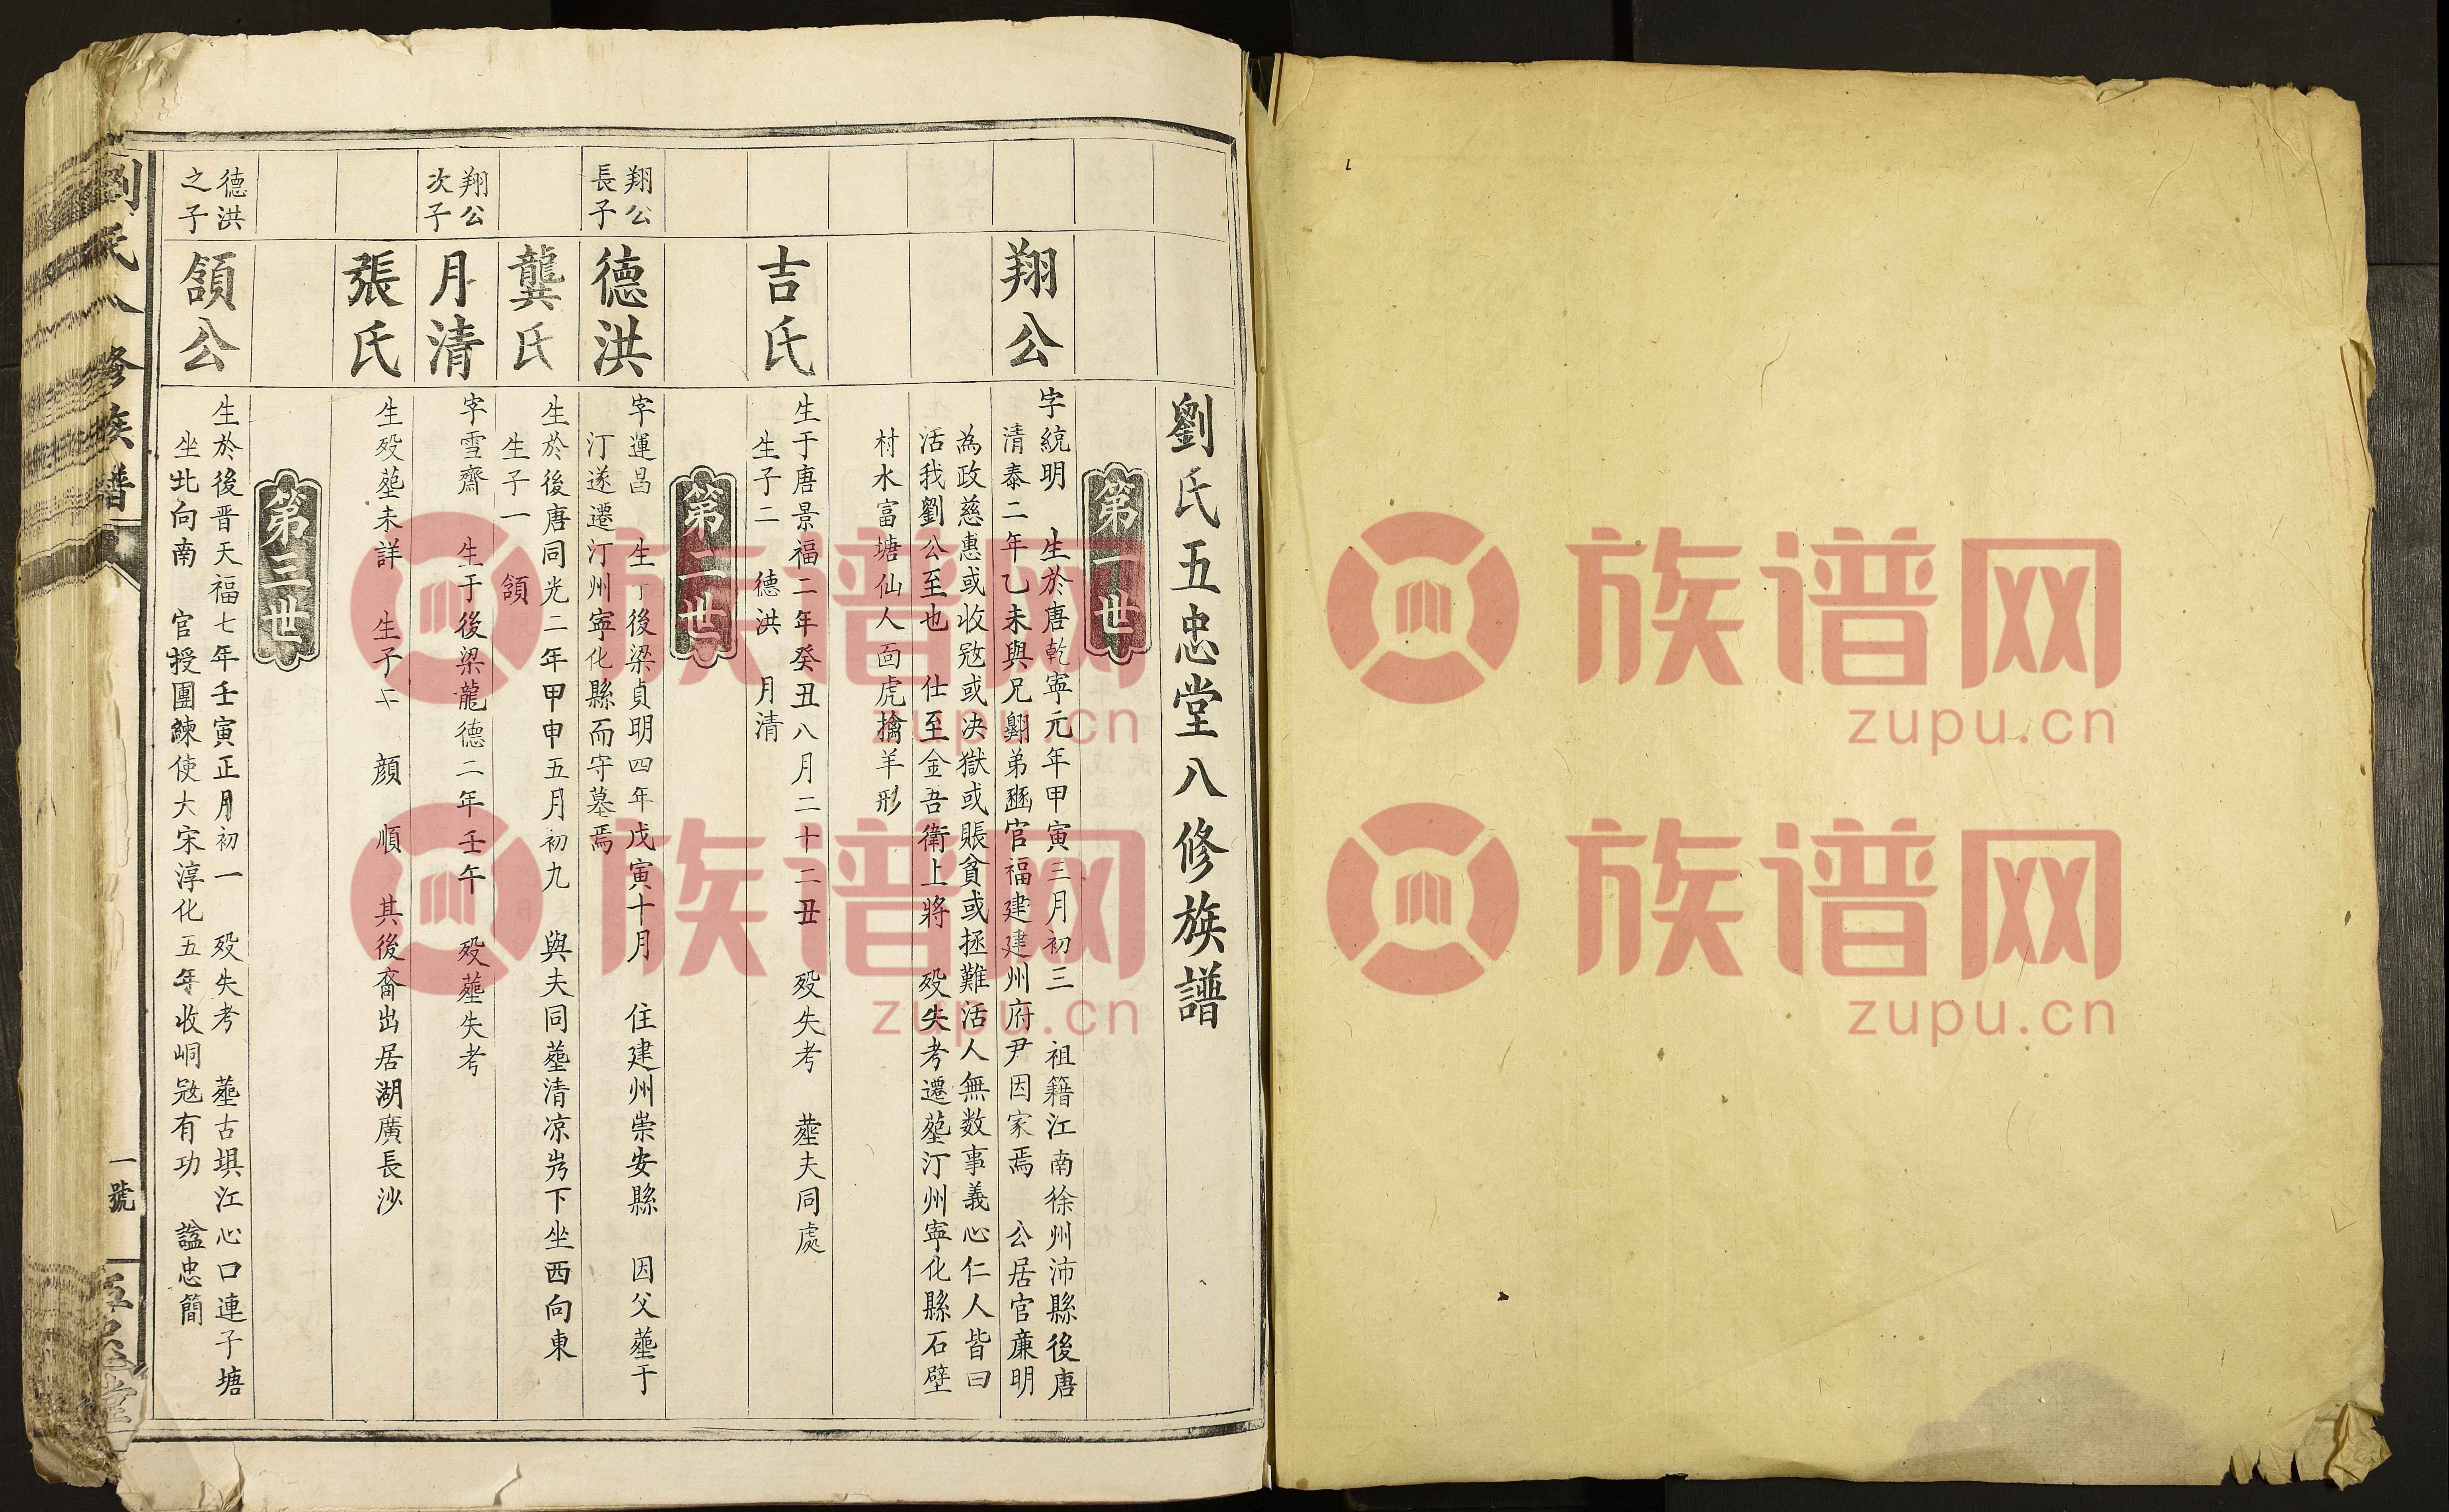 劉氏五忠堂八修族譜
第一世
翔公
字統明　生於唐乾寧元年甲寅三月初三　祖籍江南徐州沛縣後唐
清泰二年乙未與兄翺弟豳官福建建州府尹因家焉　公居官廉明
為政慈惠或收冦或决獄或賬貧或拯難活人無数事義心仁人皆曰
活我劉公至也　仕至金吾衛上將　殁失考遷塟汀州寧化縣石壁
村水富塘仙人面虎擒羊形
吉氏
生于唐景福二年癸丑八月二十二丑　殁失考　塟夫同處
生子二　德洪　月清
第二世
翔公
長子
德洪
字運昌　生于後梁貞明四年戊寅十月　住建州崇安縣　因父塟于
汀遂遷汀州寧化縣而守墓焉
龔氏
生於後唐同光二年甲申五月初九　與夫同塟清凉岃下坐西向東
生子一　頜
翔公
次子
月清
字雪齋　生于後梁龍德二年壬午　殁塟失考
張氏
生殁塟未詳　生子二　顔　順　其後裔出居湖廣長沙
第三世
德洪
之子
頜公
生於後晋天福七年壬寅正月初一　殁失考　塟古埧江心口連子塘
坐北向南　官授團練使大宋淳化五年收峒冦有功　諡忠簡
劉氏八修族譜
一號
五忠堂
族谱网
zupu.cn
族谱网
zupu.cn
族谱网
zupu.cn
族谱网
zupu.cn